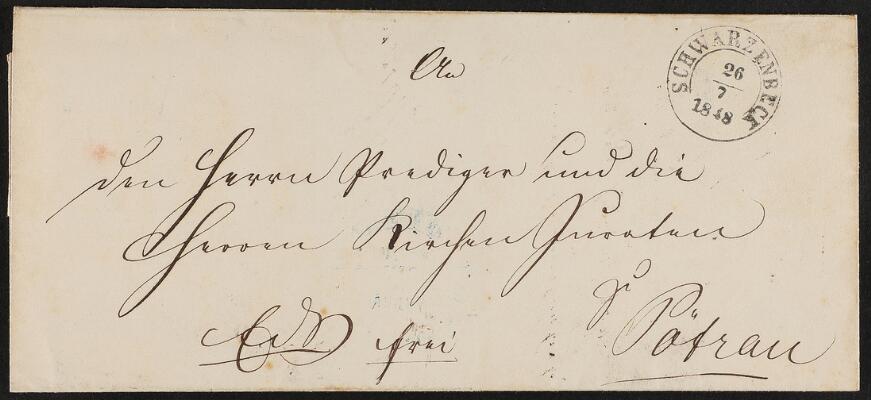 An
SCHWARZENBECK
26
7
1848
den Herrn Prediger und die
Herren Kirchen Juraten
zu
Pötrau
frei